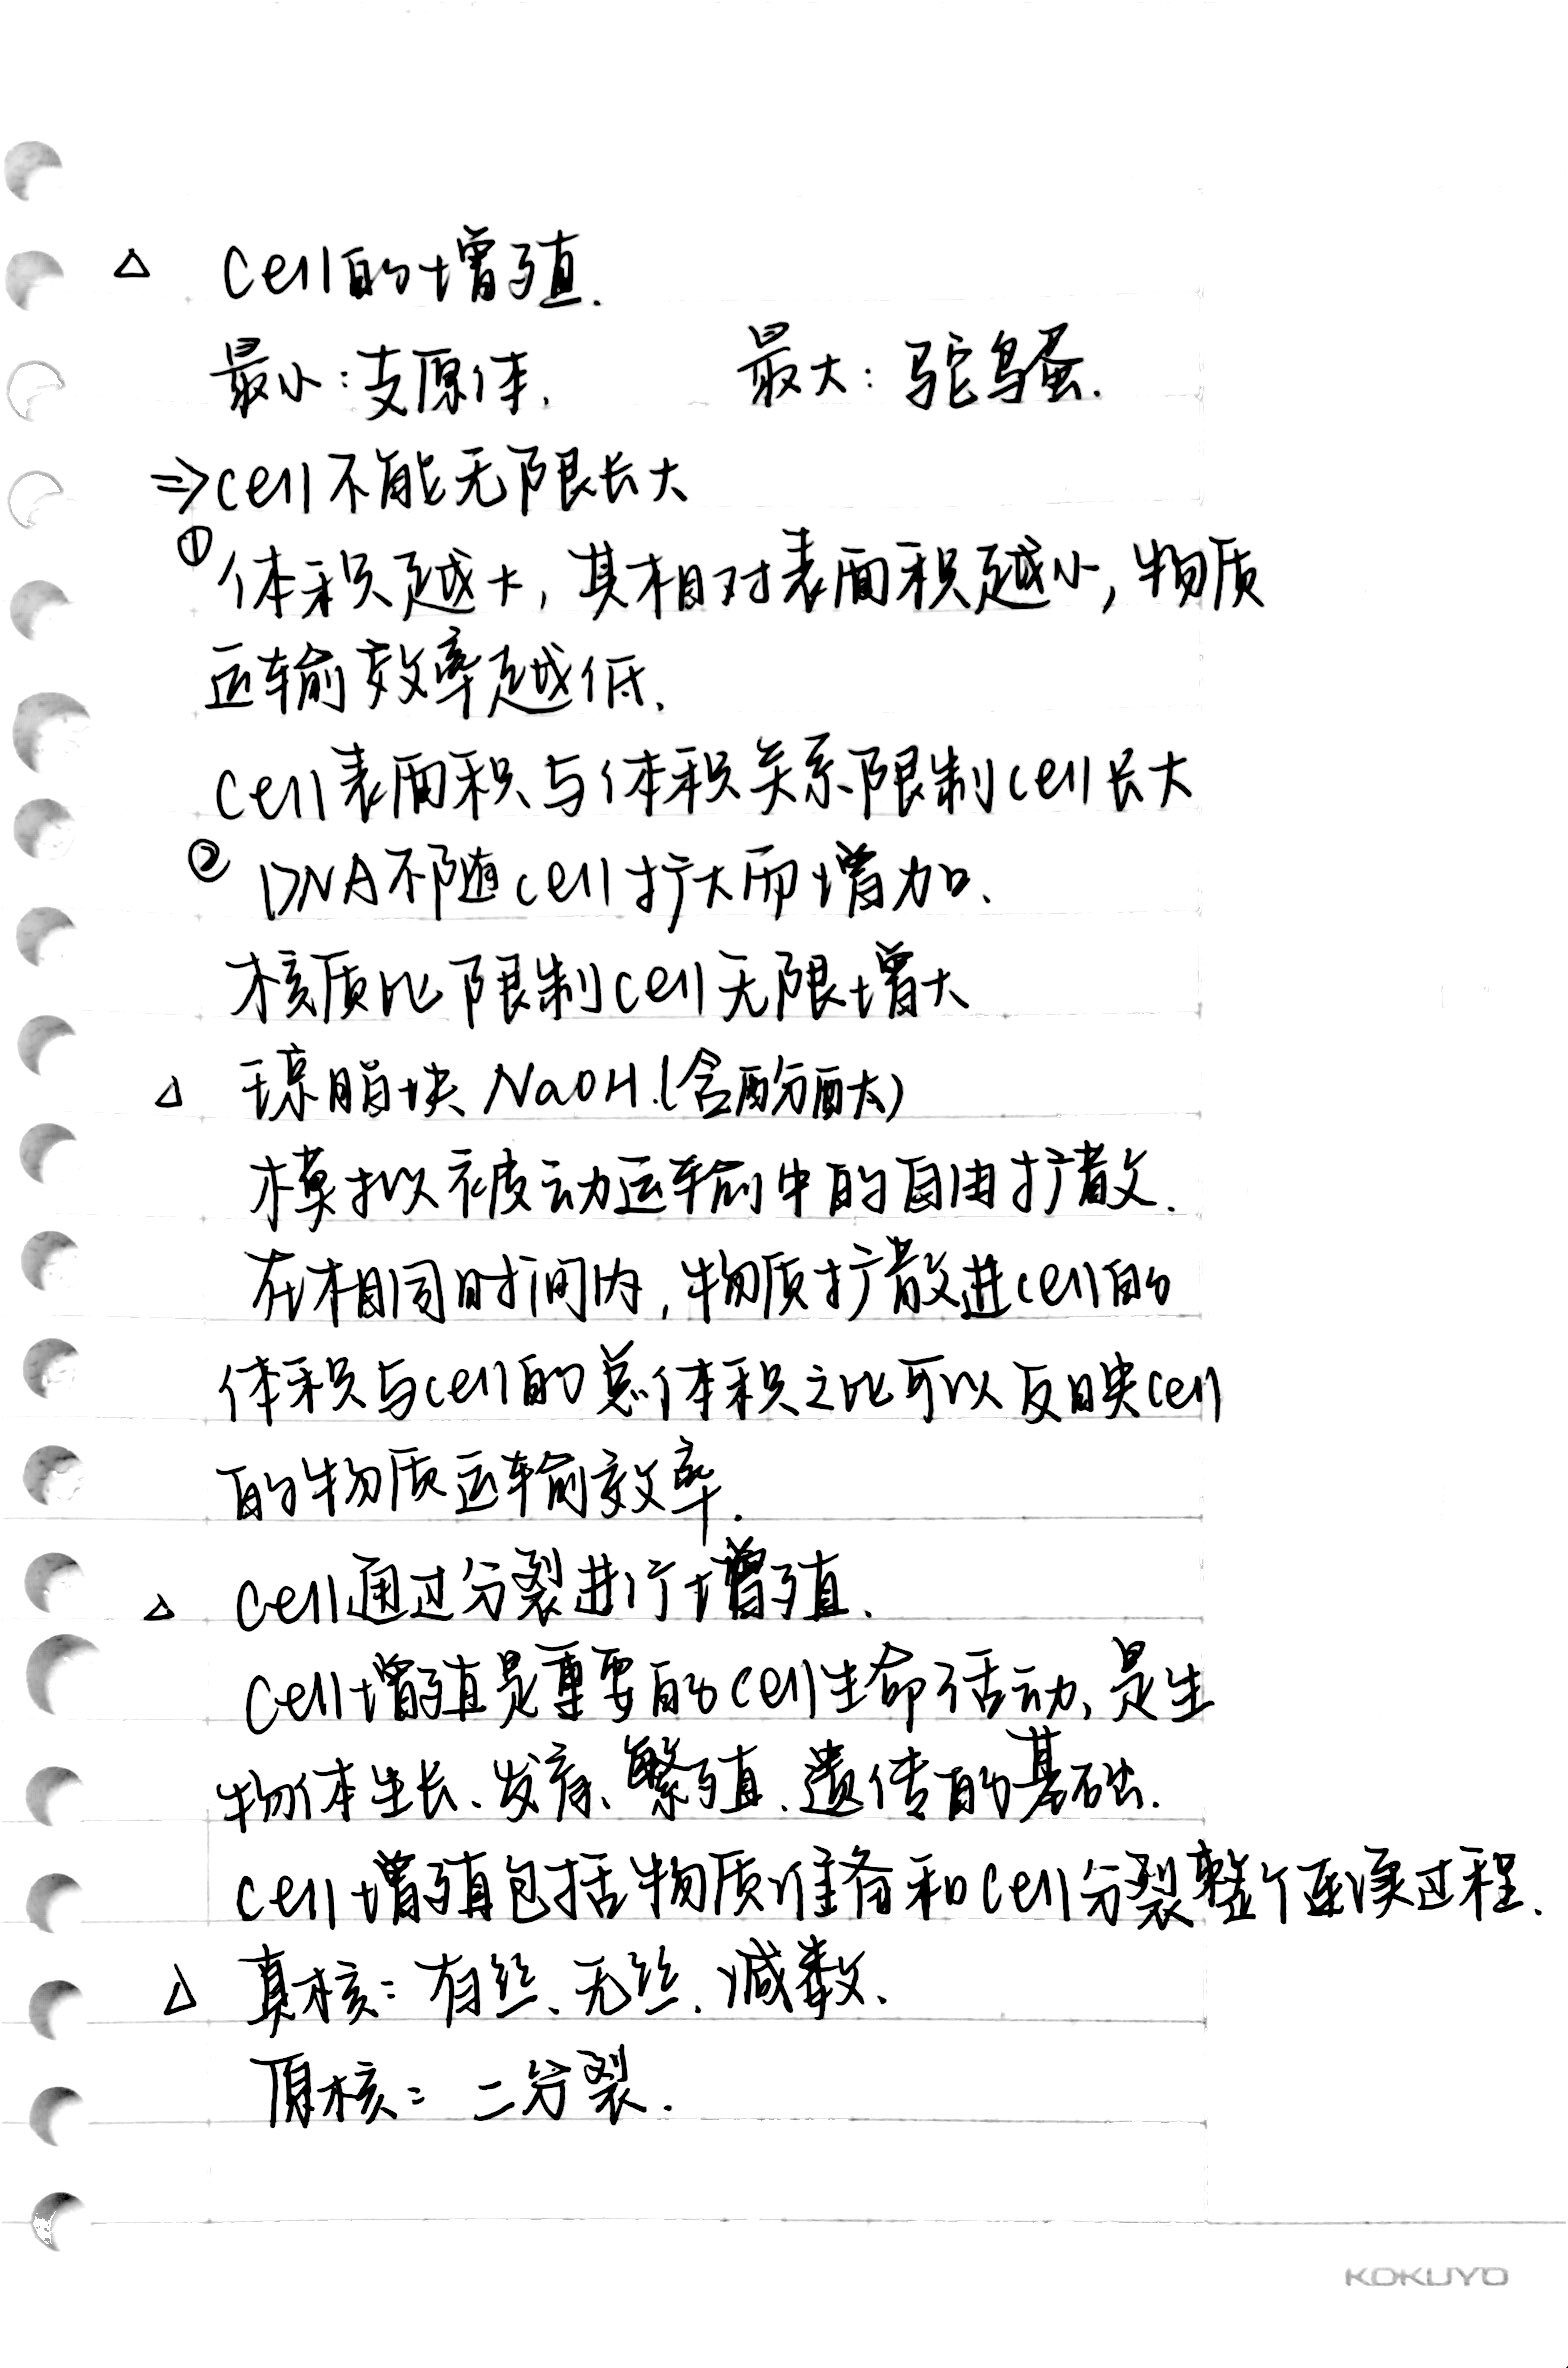 △ Cell的增殖.
最小:支原体. 最大:鸵鸟蛋.
⇒cell不能无限长大
①体积越大,其相对表面积越小,物质
运输效率越低.
Cell表面积与体积关系限制cell长大
② DNA不随cell扩大而增加.
核质比限制cell无限增大
△ 琼脂块 NaOH.(含酚酞)
模拟被动运输中的自由扩散.
在相同时间内,物质扩散进cell的
体积与cell的总体积之比可以反映cell
的物质运输效率.
△ Cell通过分裂进行增殖.
Cell增殖是重要的cell生命活动,是生
物体生长、发育、繁殖、遗传的基础.
Cell增殖包括物质准备和cell分裂整个连续过程.
△ 真核:有丝、无丝、减数.
原核:二分裂.
KOKUYO